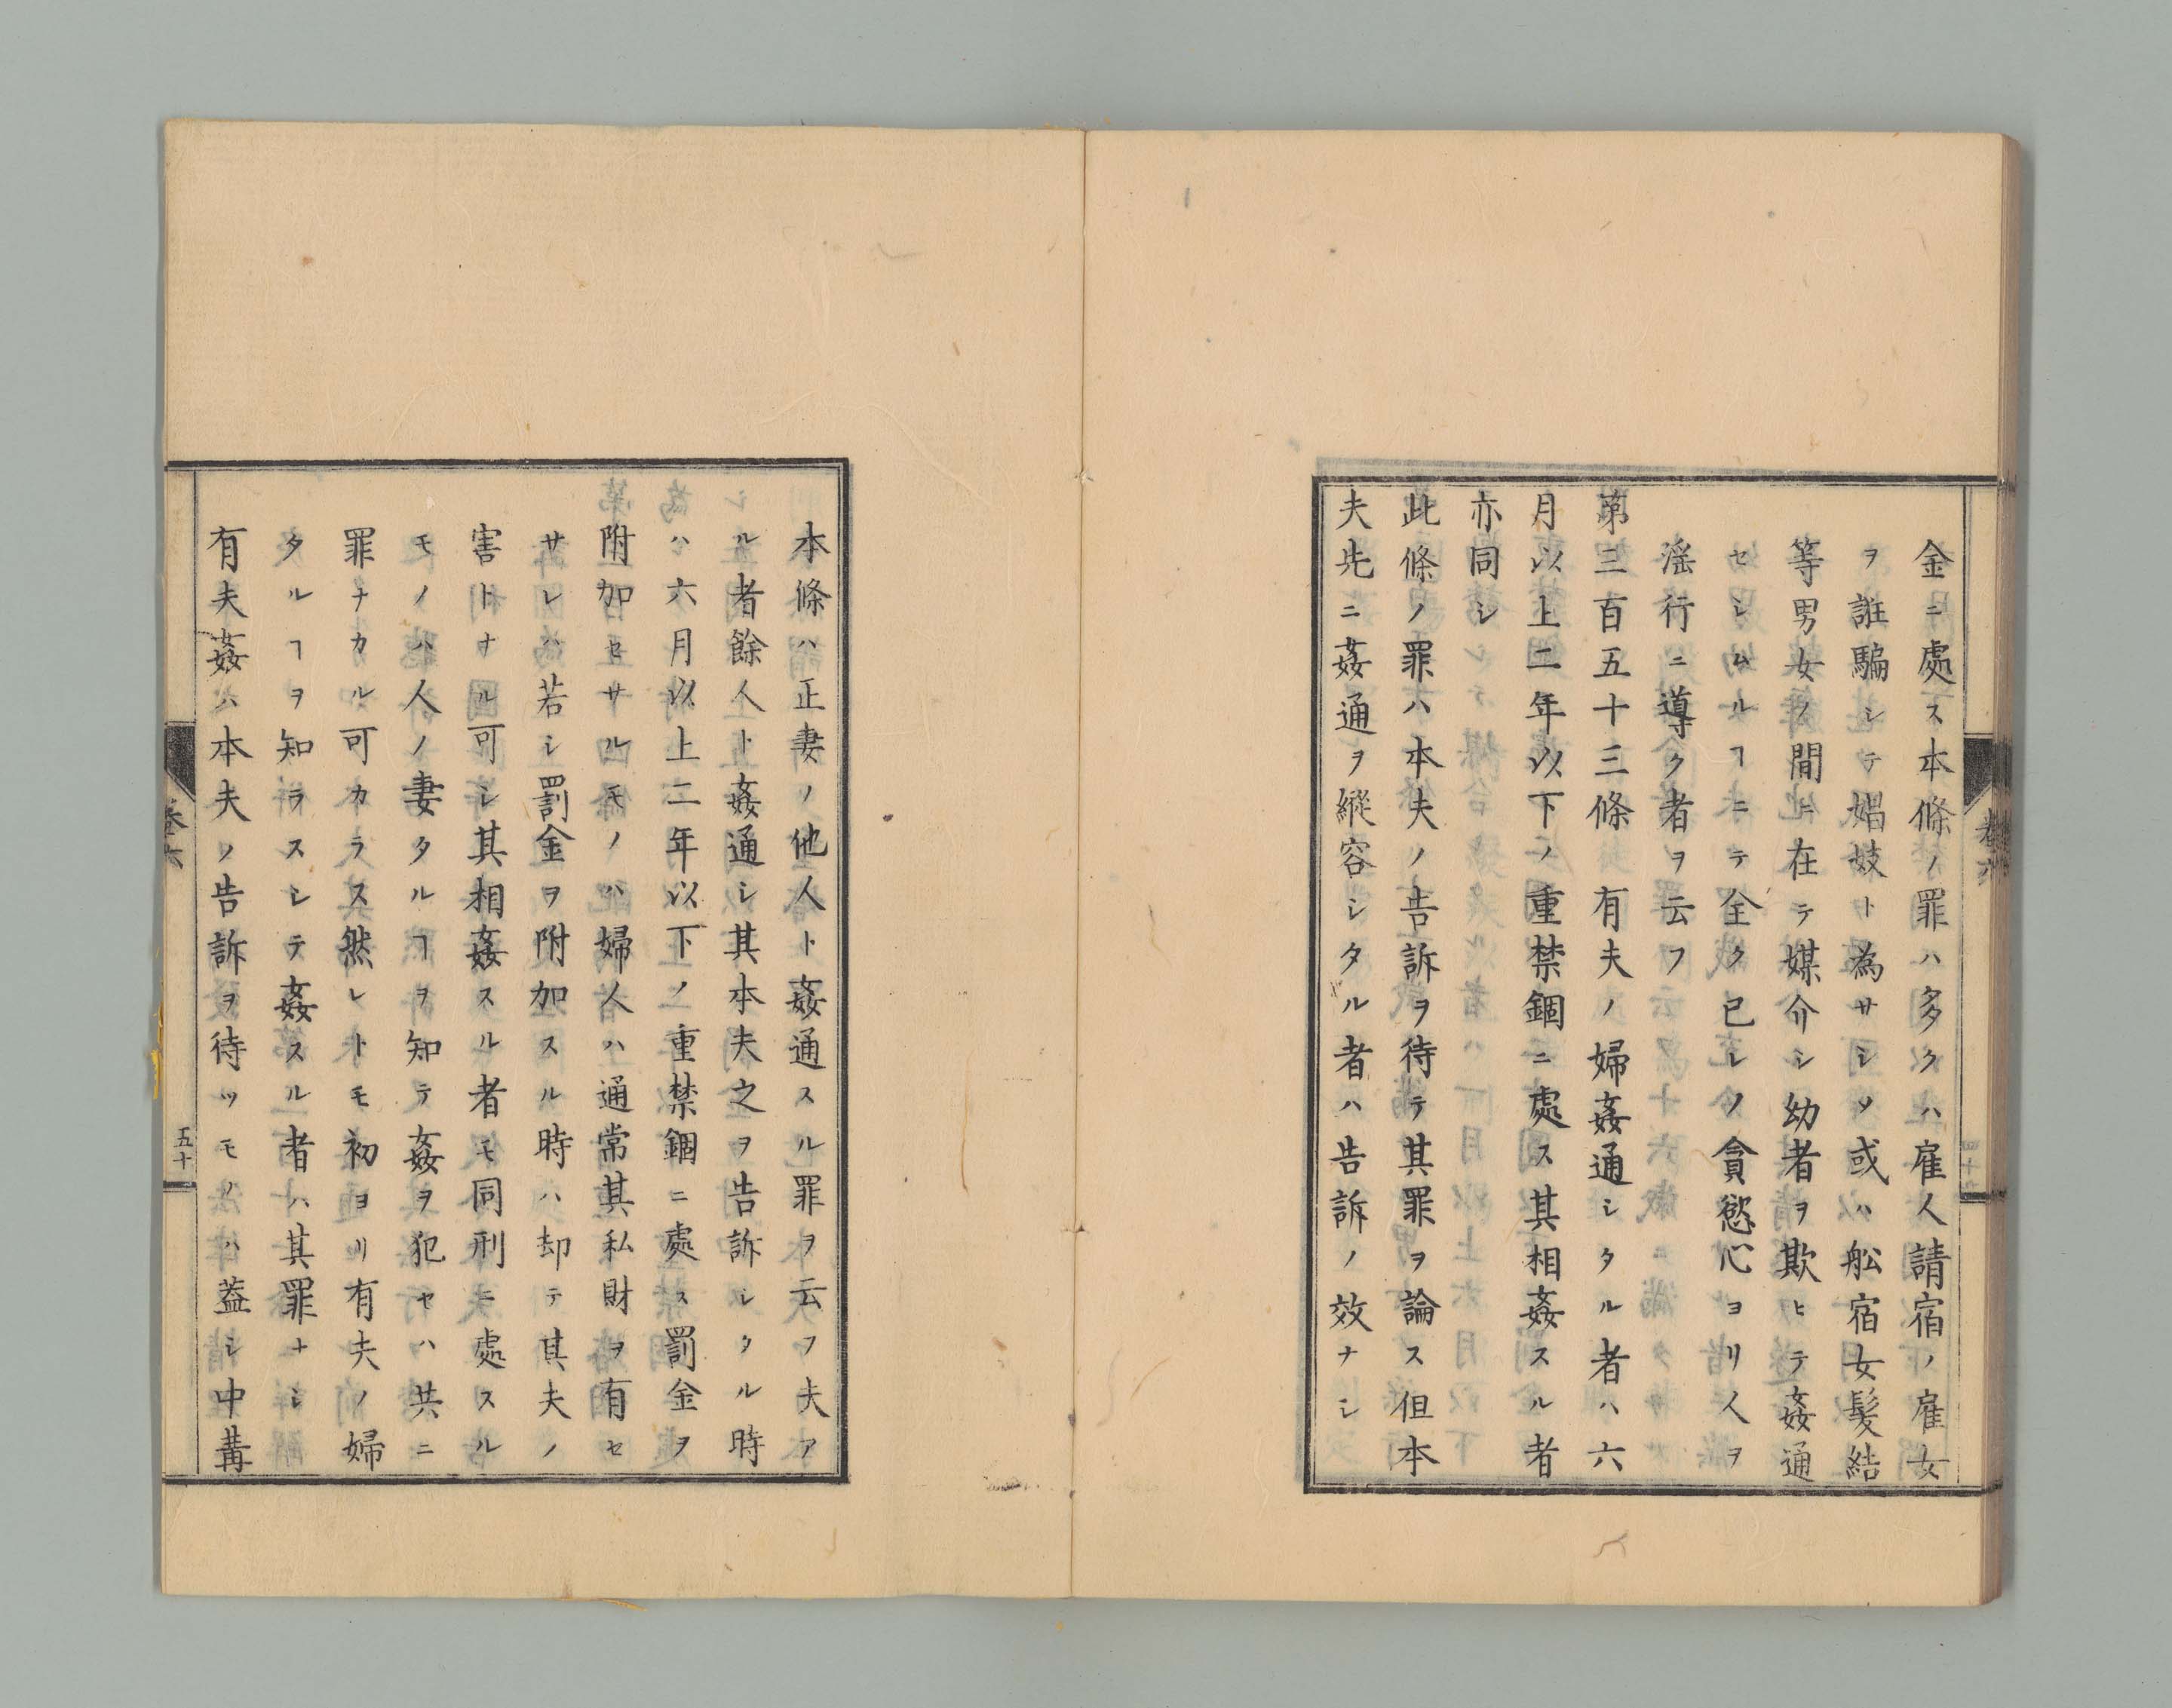 金ニ處ス本條ノ罪ハ多クハ雇人請宿ノ雇女
ヲ誑騙シテ娼妓ト為サシメ或ハ舩宿女髪結
等男女ノ間ニ在テ媒介シ幼者ヲ欺ヒテ姦通
セシムルヿニテ全ク已レノ貪慾心ヨリ人ヲ
淫行ニ導ク者ヲ云フ
第三百五十三條 有夫ノ婦姦通シタル者ハ六
月以上二年以下ノ重禁錮ニ處ス其相姦スル者
亦同シ
此條ノ罪ハ本夫ノ告訴ヲ待テ其罪ヲ論ス但本
夫先ニ姦通ヲ縱容シタル者ハ告訴ノ效ナシ
卷六
本條ハ正妻ノ他人ト姦通スル罪ヲ云フ夫ア
ル者餘人ト姦通シ其本夫之ヲ告訴シタル時
ハ六月以上二年以下ノ重禁錮ニ處ス罰金ヲ
附加セサルモノハ婦人ハ通常其私財ヲ有セ
サレハ若シ罰金ヲ附加スル時ハ却テ其夫ノ
害トナル可シ其相姦スル者モ同刑ニ處スル
モノハ人ノ妻タルヿヲ知テ姦ヲ犯セハ共ニ
罪ナカル可カラス然レトモ初ヨリ有夫ノ婦
タルヿヲ知ラスシテ姦スル者ハ其罪ナシ
有夫姦ハ本夫ノ告訴ヲ待ツモノハ葢シ中冓
卷六
五十